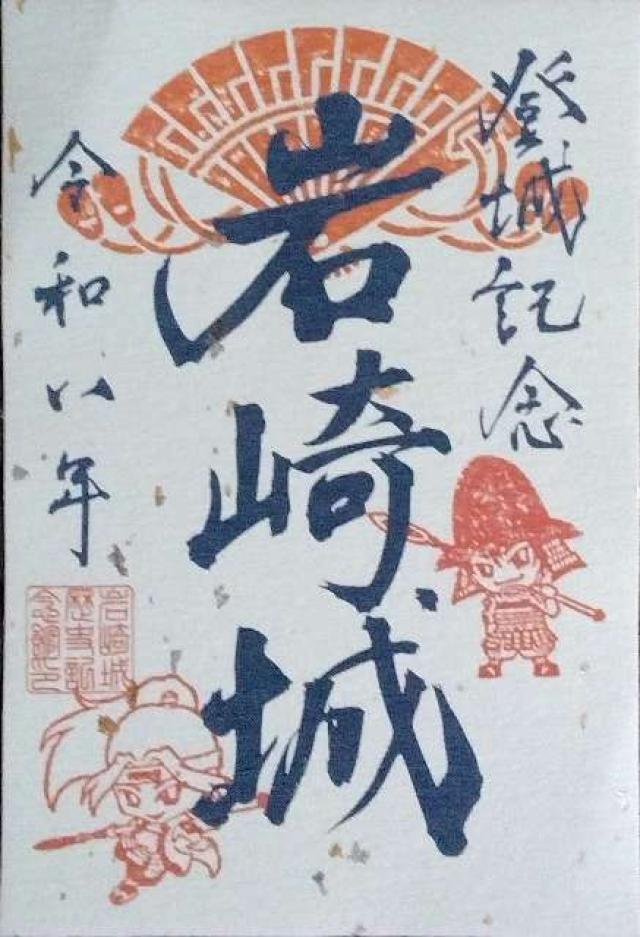 登城記念
岩崎城
令和八年
岩崎城
歴史記
念館印